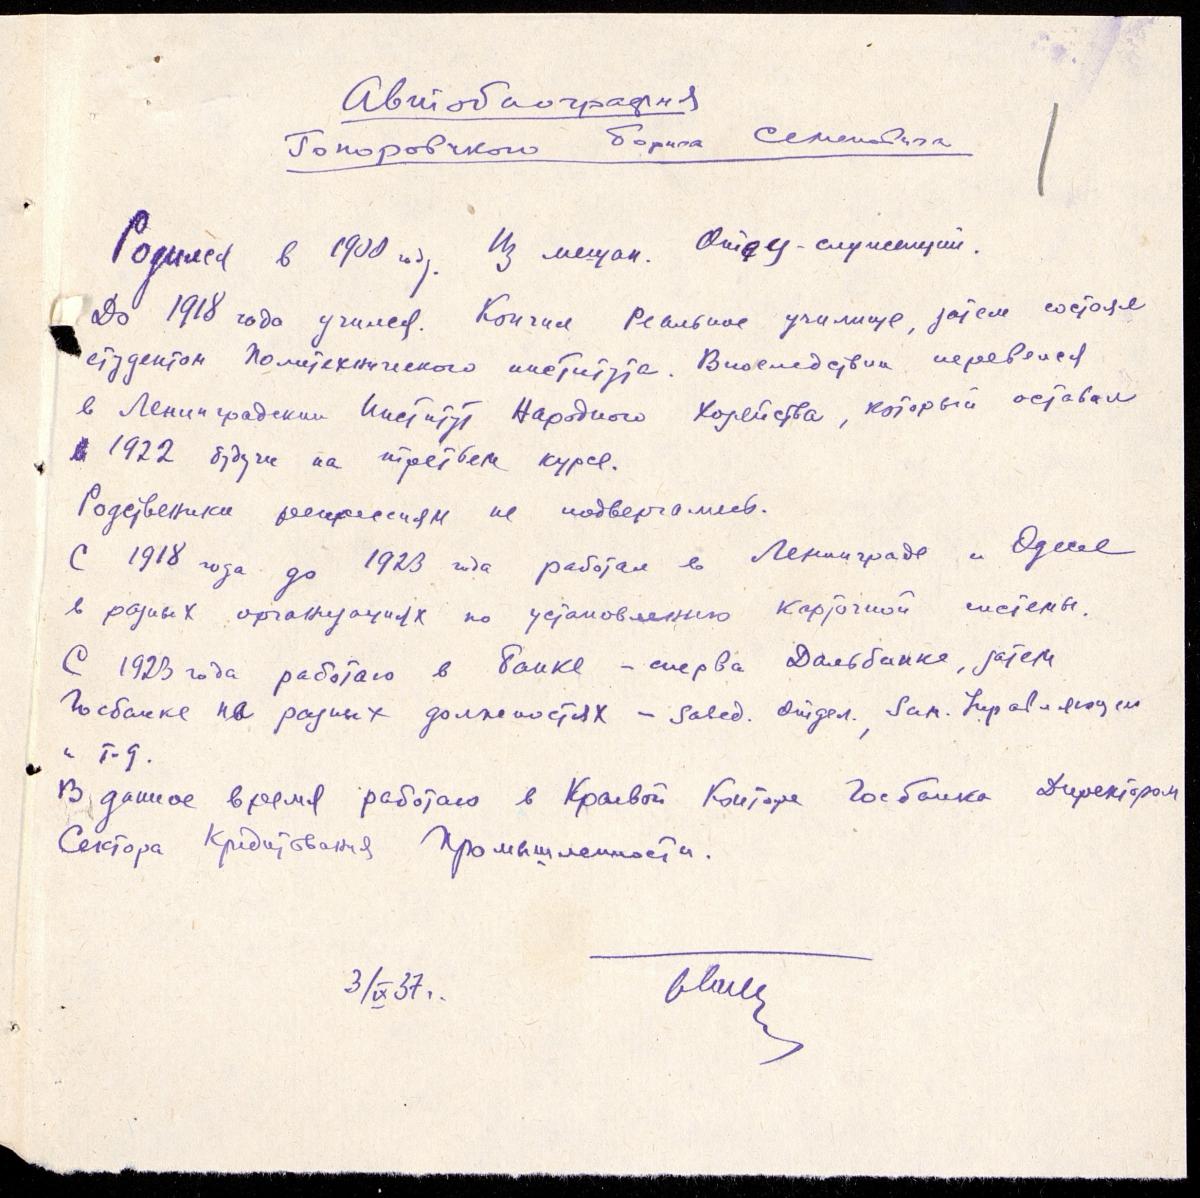 Автобиография
Топоровского Бориса Семеновича
Родился в 1900 году. Из мещан. Отец-служащий.
До 1918 года учился. Кончил Реальное училище, затем состоял
студентом Политехнического института. Впоследствии перевелся
в Ленинградский Институт Народного Хозяйства, который оставил
в 1922 будучи на третьем курсе.
Родственики репрессиям не подвергались.
С 1918 года до 1923 года работал в Ленинграде и Одессе
в разных организациях по установлению карточной системы.
С 1923 года работаю в банке - сперва Дальбанке, затем
Госбанке на разных должностях - Завед. Отдел., Зам. Управляющем
и т-д.
В данное время работаю в Краевой Конторе Госбанка Директором
Сектора Кредитования Промышленности.
3/IX 37 г.